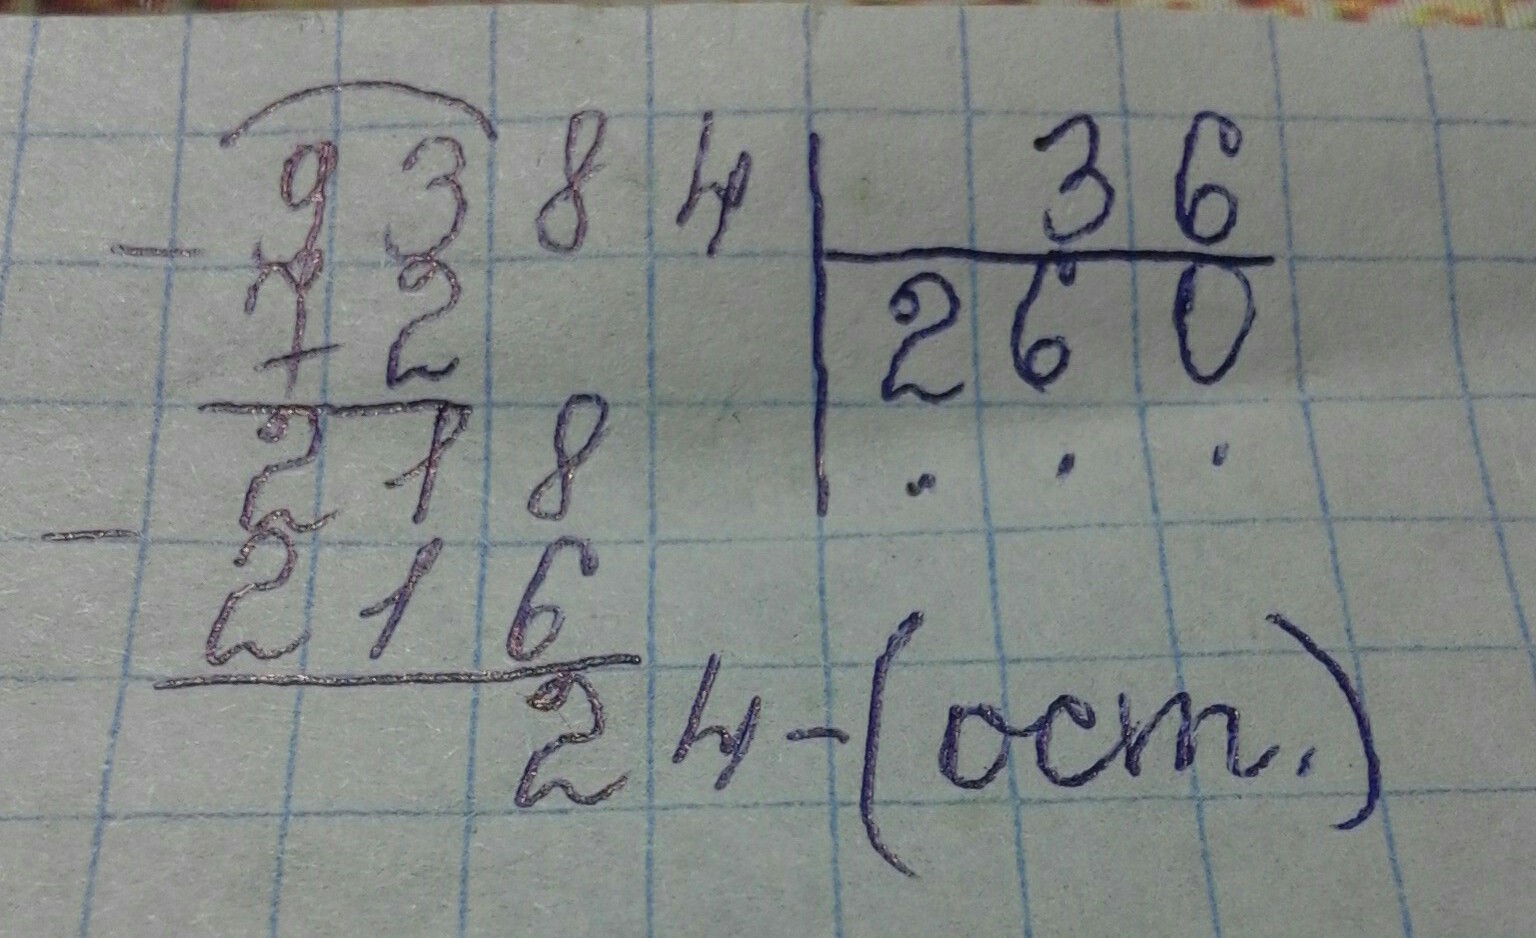 9384 36
- 72 260
218 . . .
- 216
24 - (ост.)